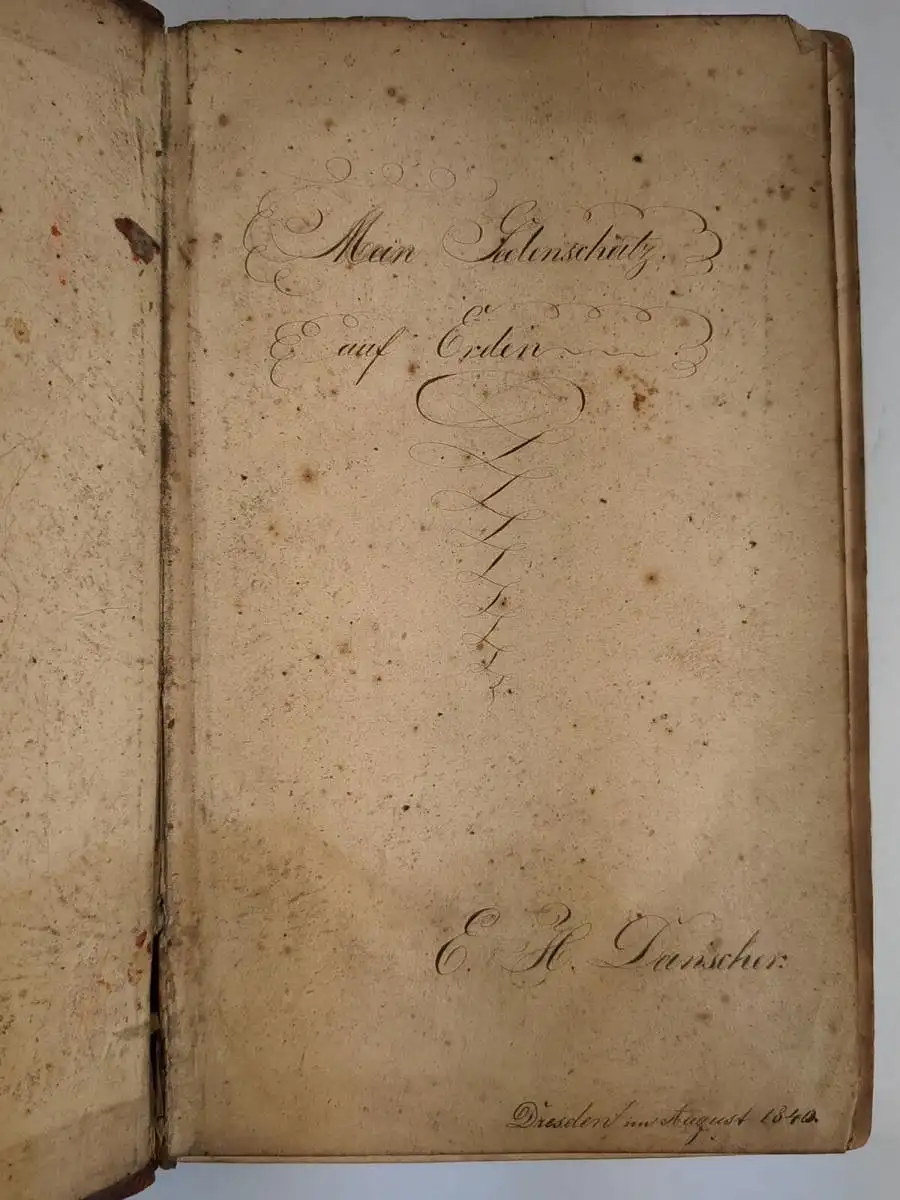 Mein Seelenschatz.
auf Erden.
E. H. Danscher.
Dresden im August 1840.